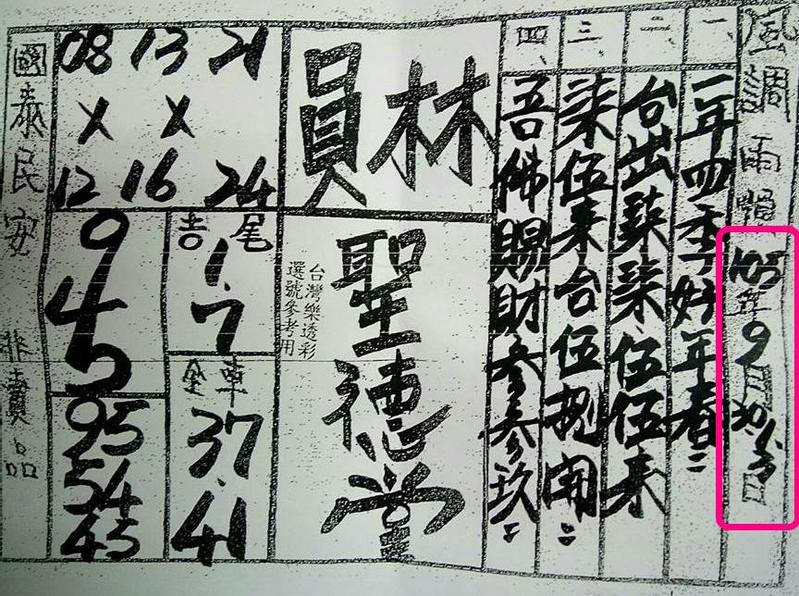 風調雨順 105年9月20.22日
一 一年四季好年春
二 台出柒柒伍伍来
三 柒伍来台伍捌開
四 吾佛賜財叁叁玖
林員
聖德堂
台灣樂透彩
選號參考用
21 13 08
X X
24 16 12
吉尾
1.7
全車
37.41
9
4
5
95
54
45
國泰民安 非賣品